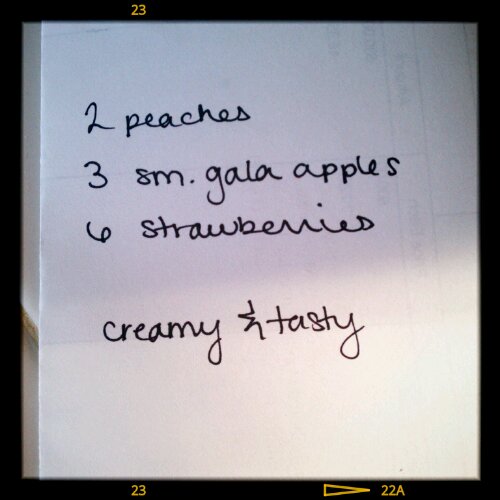 23
2 peaches
3 sm. gala apples
6 strawberries
creamy & tasty
23
22A